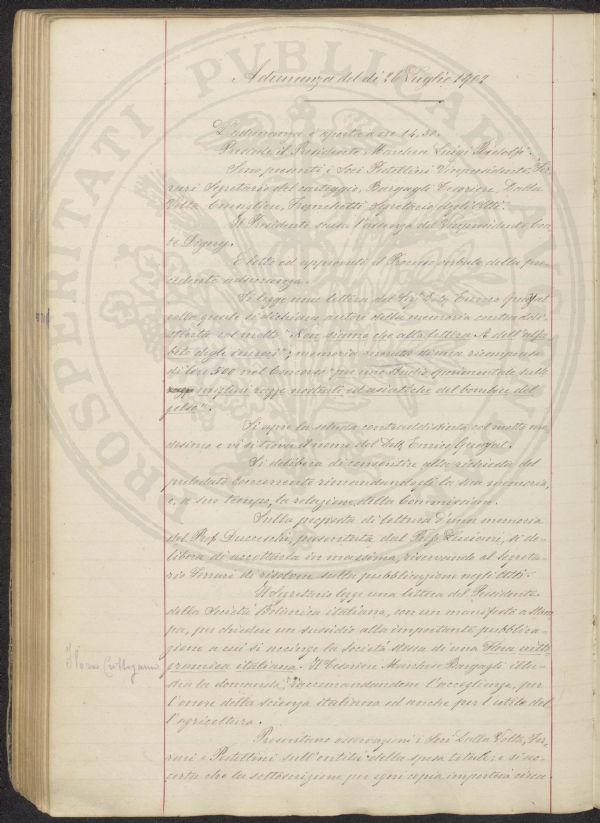 Adunanza del dì 26 Luglio 1902
L'adunanza è aperta a ore 14,30.
Presiede il Presidente Marchese Luigi Ridolfi.
Sono presenti i Soci Pestellini Vicepresidente, Fer-
rari Segretario del carteggio, Bargagli Tesoriere, Dalla
Volta Consigliere, Franchetti Segretario degli Atti.
Il Presidente scusa l'assenza del Vicepresidente Con-
te Digny.
È letto ed approvato il Processo verbale della pre-
cedente adunanza.
Si legge una lettera del Sig. Dott. Enrico Quajat
colla quale si dichiara autore della memoria contraddi-
stinta col motto "Non siamo che alla lettera A dell'alfa-
beto degli incroci"; memoria munita di una ricompensa
di lire 500 nel Concorso "per uno studio sperimentale sulle
migliori razze nostrali ed asiatiche del bombice del
gelso".
Si apre la scheda contraddistinta col motto me-
desimo e vi si trova il nome del Dott. Enrico Quajat.
Si delibera di consentire alla richiesta del
preludato Concorrente rimandandogli la sua memoria,
e, a suo tempo, la relazione della Commissione.
Sulla proposta di lettura d'una memoria
del Prof. Ducceschi, presentata dal Prof. Luciani, si de-
libera di accettarla in massima, riservando al Segreta-
rio Ferrari di risolvere sulla pubblicazione negli Atti.
Il Segretario legge una lettera del Presidente
della Società Botanica italiana, con un manifesto a stam-
pa, per chiedere un sussidio alla importante pubblica-
zione a cui si accinge la società stessa di una Flora critto-
gramica italiana. Il Tesoriere Marchese Bargagli illu-
stra la domanda, raccomandandone l'accoglienza, per
l'onore della scienza italiana ed anche per l'utile del-
l'agricoltura.
Flora Crittogama
Presentano osservazioni i Soci Dalla Volta, Fer-
rari e Pestellini sull'entità della spesa totale; e si ac-
certa che la sottoscrizione per ogni copia importerà circa
PROSPERITATI PVBLICAE AVGENDAE